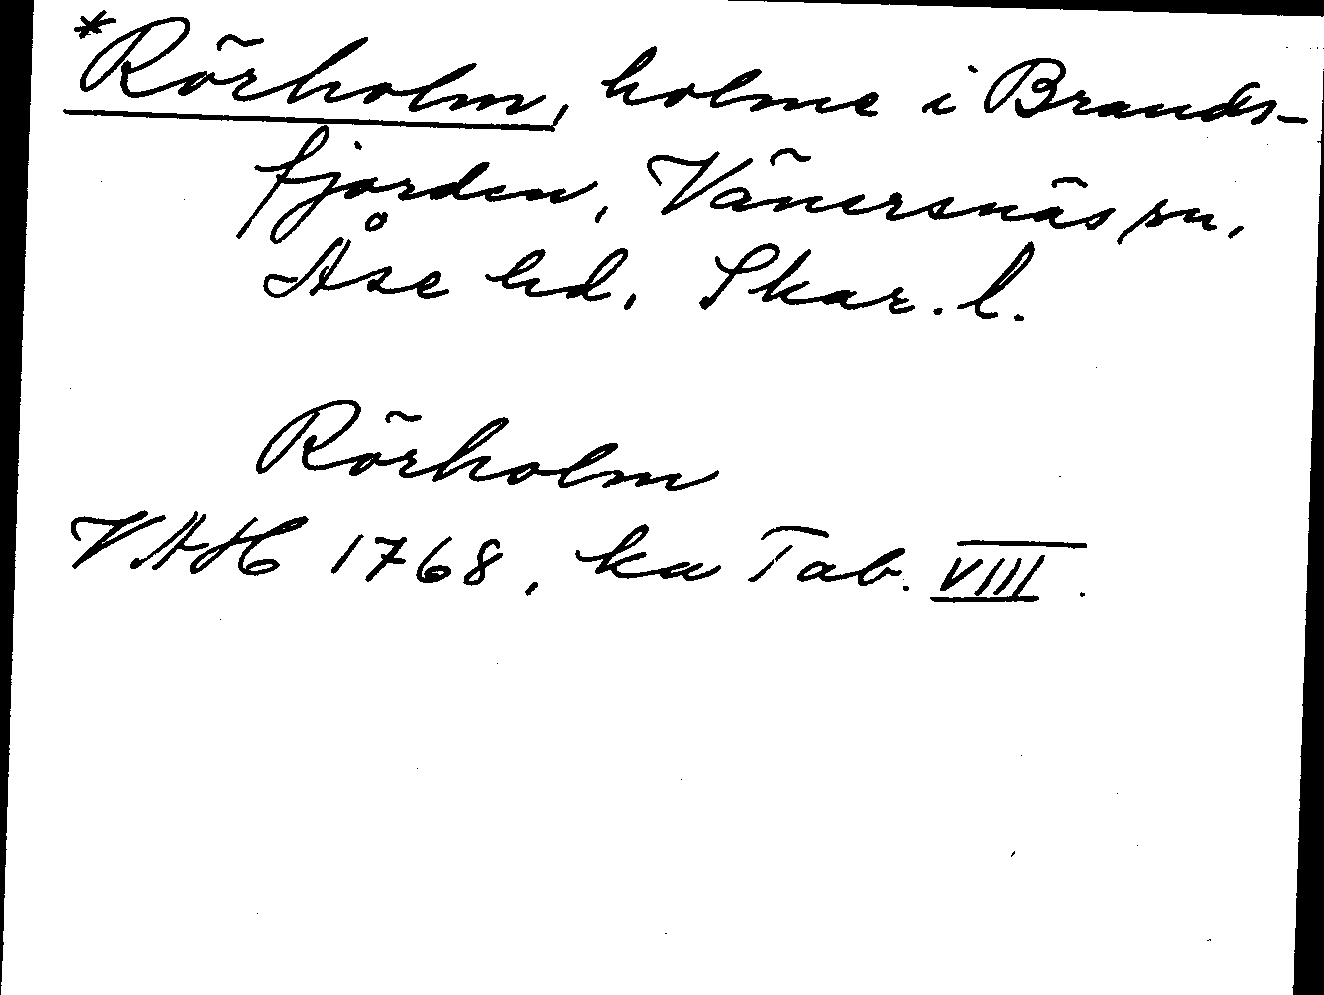 *Rörholm, holme i Brands-
fjorden, Vänersnäs sn,
Åse hd, Skar. l.
Rörholm
VAH 1768, ka Tab. VIII.